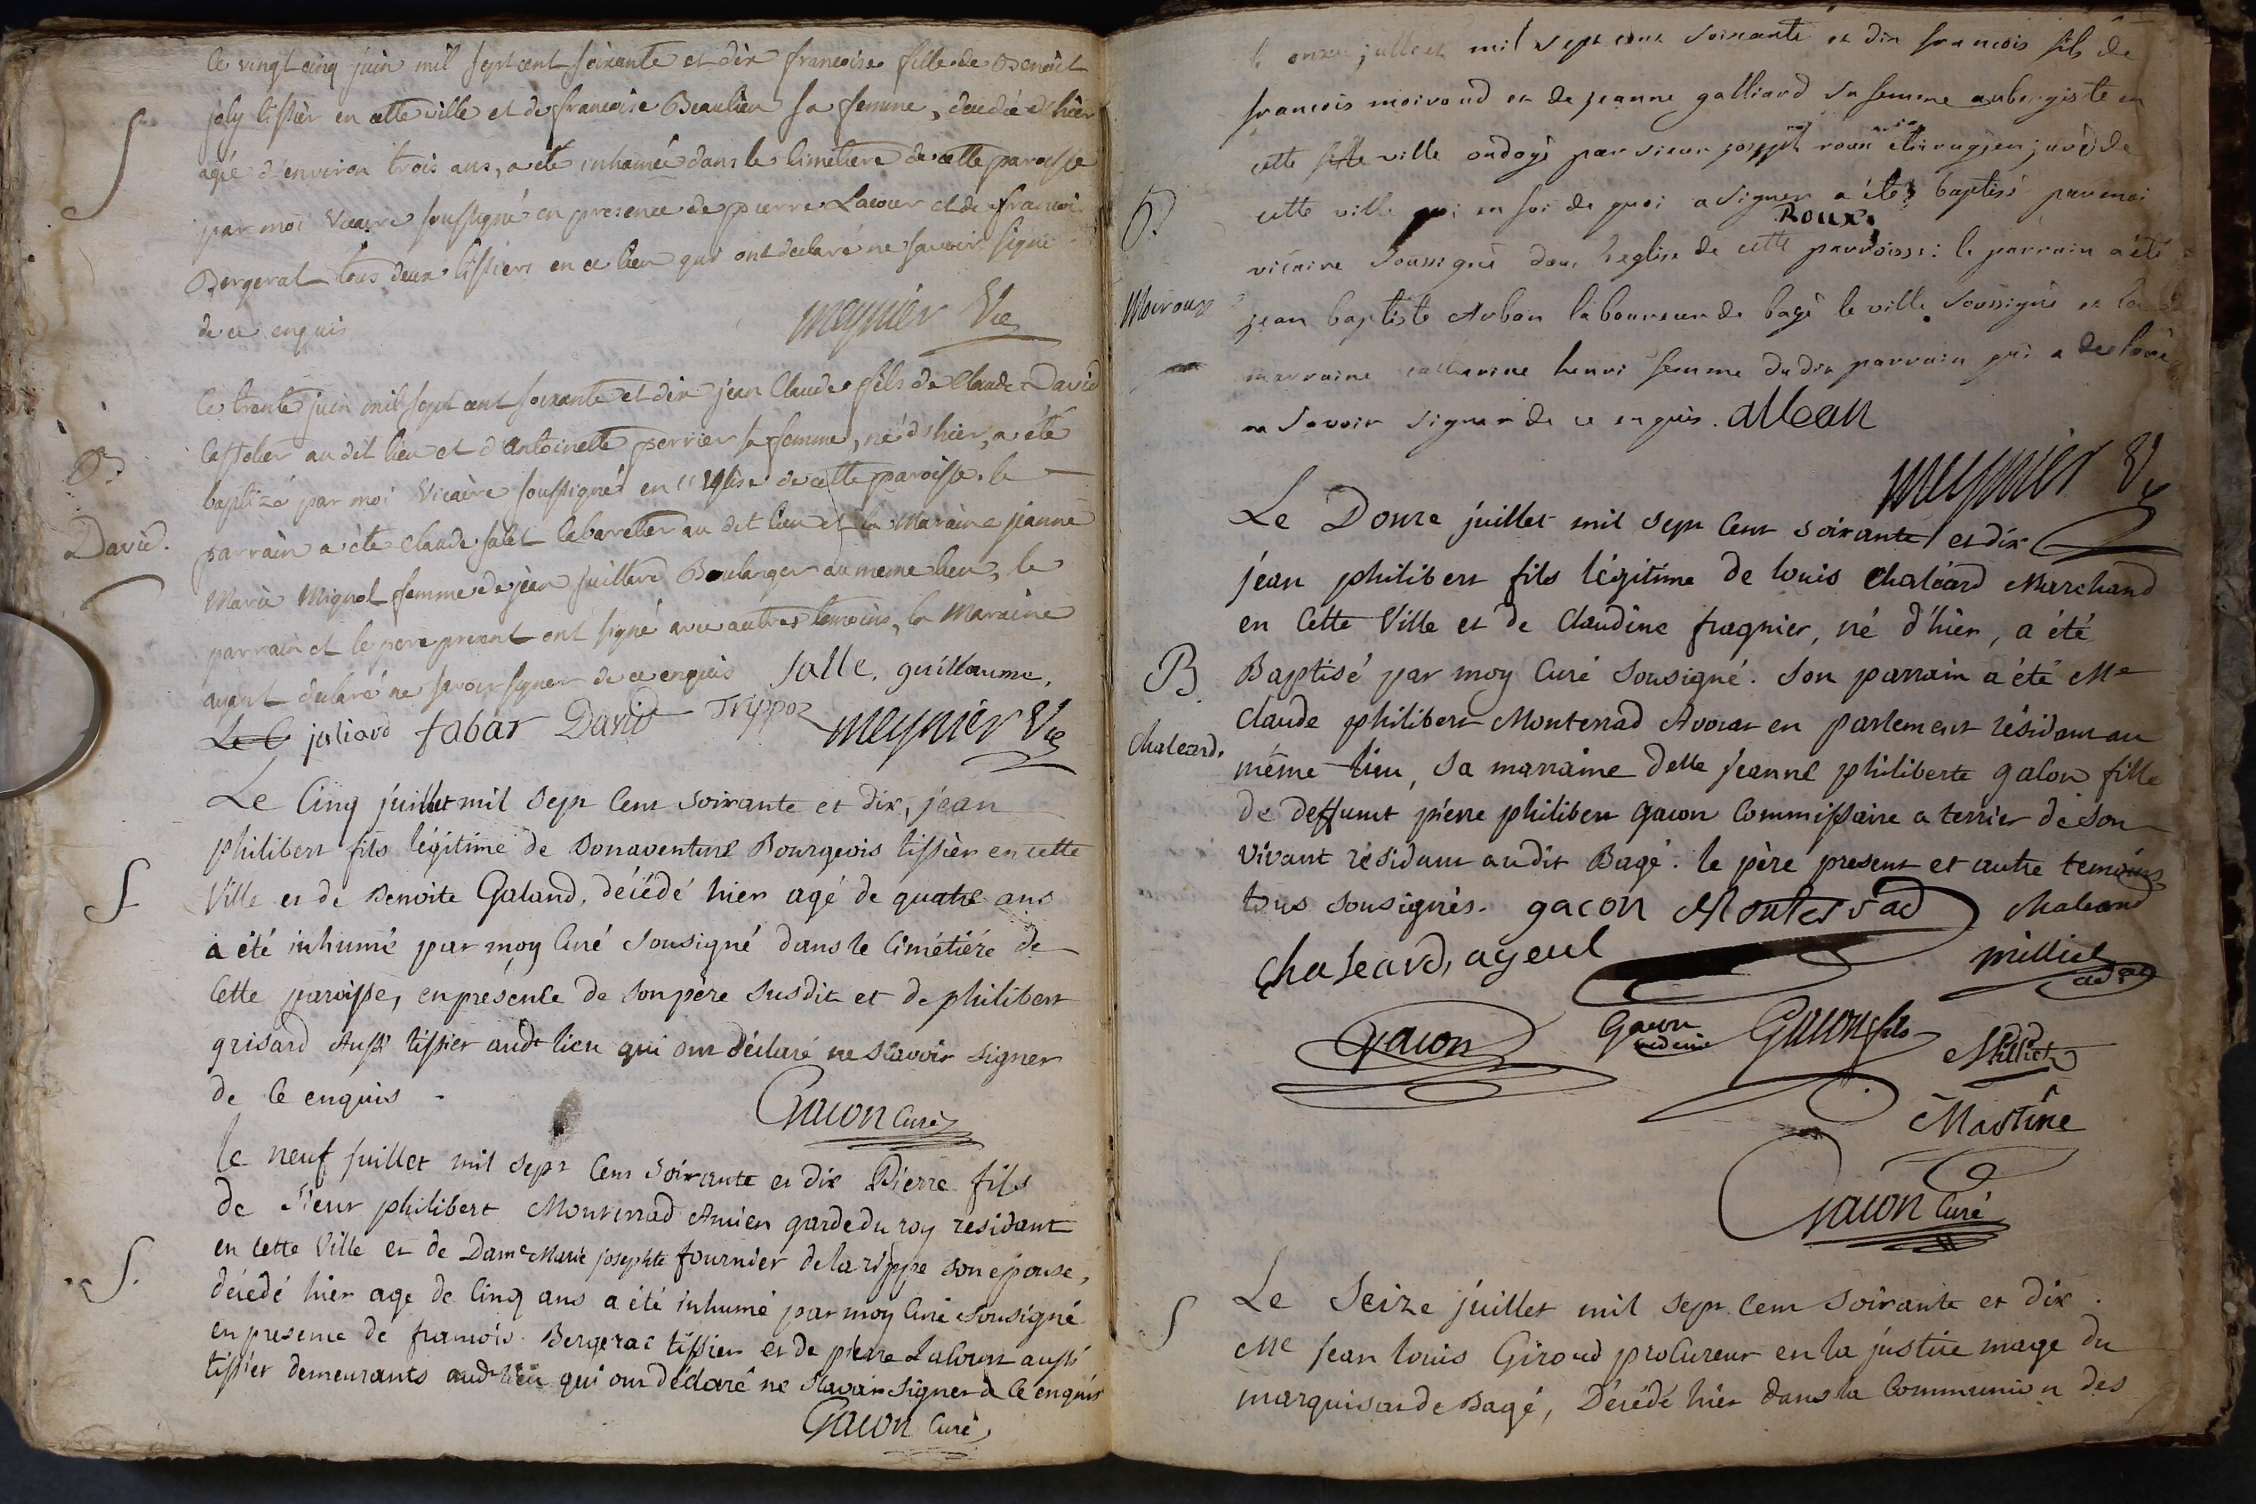 le vingt cinq juin mil sept cent soixante et dix francoise fille de Benoit
joly tissier en cette ville et de francoise Beaulieu sa femme, decedée d'hier
agée d'environ trois ans, a été inhumée dans le cimetiere de cette paroisse
par moi Vicaire soussigné en presence de pierre Lacour et de francois
Bergerat tous deux tissiers en ce lieu qui ont declaré ne savoir signé
de ce enquis
meynier Vic
S
le trente juin mil sept cent soixante et dix jean Claude fils de Claude David
audit lieu et d'Antoinette perrier sa femme, né d'hier, a été
baptizé par moi Vicaire soussigné en l'Eglise de cette paroisse. le
parrain a été Claude salet Cabaretier au dit lieu et la Maraine jeanne
Marie Mignot femme de jean juillard Boulanger au meme lieu, le
parrain et le pere present ont signé avec autres temoins, la Maraine
ayant declaré ne savoir signer de ce enquis salle. guillaume.
Le C juliard fabar David Trippoz meynier Vic
B.
David.
Le Cinq juillet mil sept Cent soixante et dix, jean
philibert fils légitime de Bonaventure Bourgeois tissier en cette
Ville et de Benoite Galand, décédé hier agé de quatre ans
a été inhumé par moy Curé sousigné dans le Cimétiére de
Cette paroisse, en présence de son père susdit et de philibert
grisard Aussi tissier audt lieu qui ont déclaré ne sçavoir signer
de Ce enquis.
Gacon Curé
S
le neuf juillet mil sept Cent soixante et dix Pierre fils
de Sieur philibert Monterrad Ancien garde du roy residant
en Cette Ville et de Dame Marie josephte fournier de la rippe son épouse,
décédé hier age de Cinq ans a été inhumé par moy Curé sousigné
en presence de francois Bergerat tissier et de pierre Lacour aussi
tissier demeurants audt lieu qui ont déclaré ne sçavoir signer de Ce enquis
Gacon Curé
S.
le onze juillet mil sept cent soixante et dix francois fils de
francois moiroud et de jeanne galliard sa femme aubergiste en
cette ville ondoyé par sieur joseph roux chirugien juré de
cette ville qui en foi de quoi a signer a été baptisé par moi
Roux.
vicaire soussigné dans l'eglise de cette parroisse: le parrain a été
jean baptiste Auban laboureur de bagé la ville soussigné et la
marraine catherine henri femme du dit parrain qui a declaré
ne savoir signer de ce enquis. Alban
meynier Vic
B.
Moiroux
Le Douze juillet mil sept Cent soixante et dix
jean philibert fils légitime de louis Chaléard Marchand
en Cette Ville et de Claudine fragnier, né d'hier, a été
Baptisé par moy Curé sousigné. son parrain a été Me
Claude philibert Monterrad Avocat en parlement résidant au
même lieu, sa marraine Delle jeanne philiberte gacon fille
de deffunt pierre philibert gacon Commissaire a terrier de son
vivant résidant audit Bagé. le père present et autre temoins
tous sousignés. gacon Monterrad Chaleard
B
Chaleard.
Chaleard, ayeul
milliet
Gacon Gacon medecin Gacon fils Milliet
Martine
Gacon Curé
Le Seize juillet mil sept Cent soixante et dix.
Me jean louis Giroud procureur en la justice mage du
marquisat de Bagé, Décédé hier dans la Communion des
S